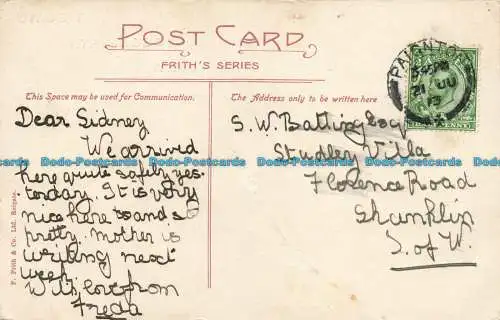 POST CARD
FRITH'S SERIES
This Space may be used for Communication.
The Address only to be written here
PAIGNTON
21 JU
13
Dear Sidney
We arrived
here quite safely yes-
terday. It is very
nice here and so
pretty. Mother is
writing next
week.
With love from
Freda
S. W. Batting Esq
Studley Villa
Florence Road
Shanklin
I. of W.
F. Frith & Co. Ltd. Reigate.
Dodo-Postcards Dodo-Postcards Dodo-Postcards Dodo-Postcards